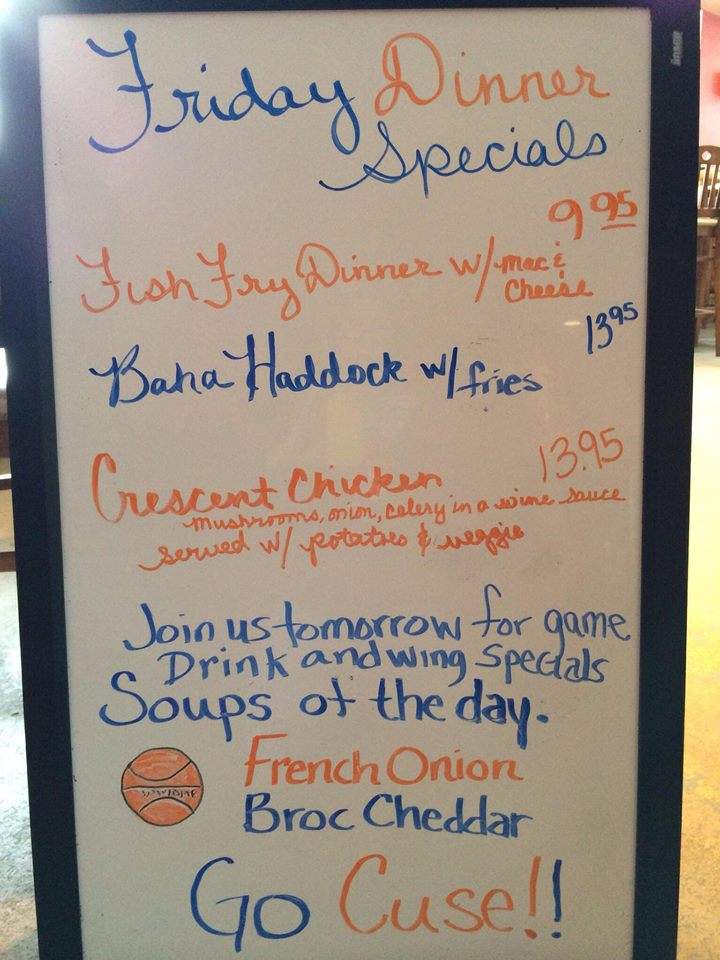 Friday Dinner
Specials
9 95
Fish Fry Dinner w/ mac &
Cheese
13 95
Baha Haddock w/ fries
Crescent Chicken 13.95
mushrooms, onion, celery in a wine sauce
served w/ potatoes & veggie
Join us tomorrow for game
Drink and wing specials
Soups of the day.
French Onion
Broc Cheddar
Go Cuse!!